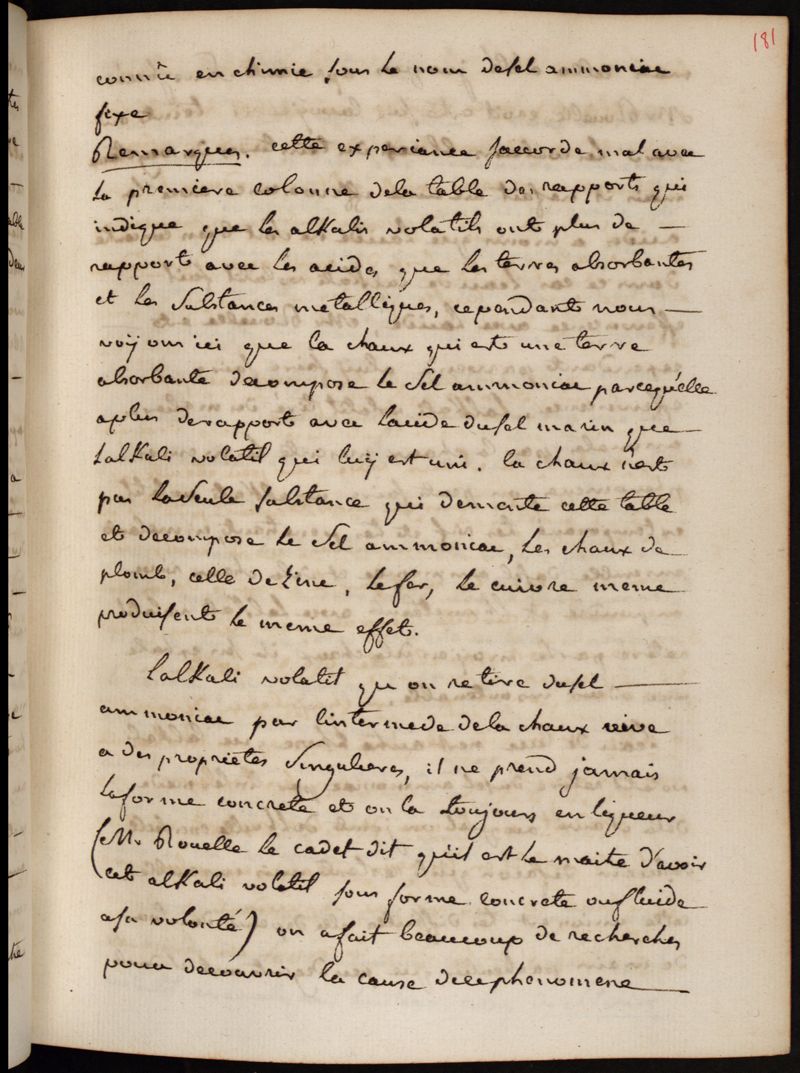 181
connüe en chimie sous le nom de sel ammoniac
fixe
Remarques. cette experiance saccorde mal avec
la premiere colonne dela table des rapports qui
indique que les alkalis volatils ont plus de —
rapport avec les acides que les terres absorbantes
et les substances metalliques, cependant nous —
voÿons ici que la chaux qui est une terre
absorbante decompose le sel ammoniac parcequ'elle
a plus de rapport avec lacide du sel marin que —
lalkali volatil qui luÿ est uni. la chaux n'est
pas la seule substance qui demente cette table
et decompose le sel ammoniac, les chaux de
plomb, celle de Zinc, le fer, le cuivre meme
produisent le meme effet.
lalkali volatil qu on retire du sel —
ammoniac par lintermede dela chaux vive
a des proprietes singulieres, il ne prend jamais
la forme concrete et on la toujours en liqueur
(M. Rouelle le cadet dit quil est le maite d'avoir
cet alkali volatil sous forme concrete ou fluide
a sa volonté) on a fait beaucoup de recherches
pour decouvrir la cause de ce phenomene —